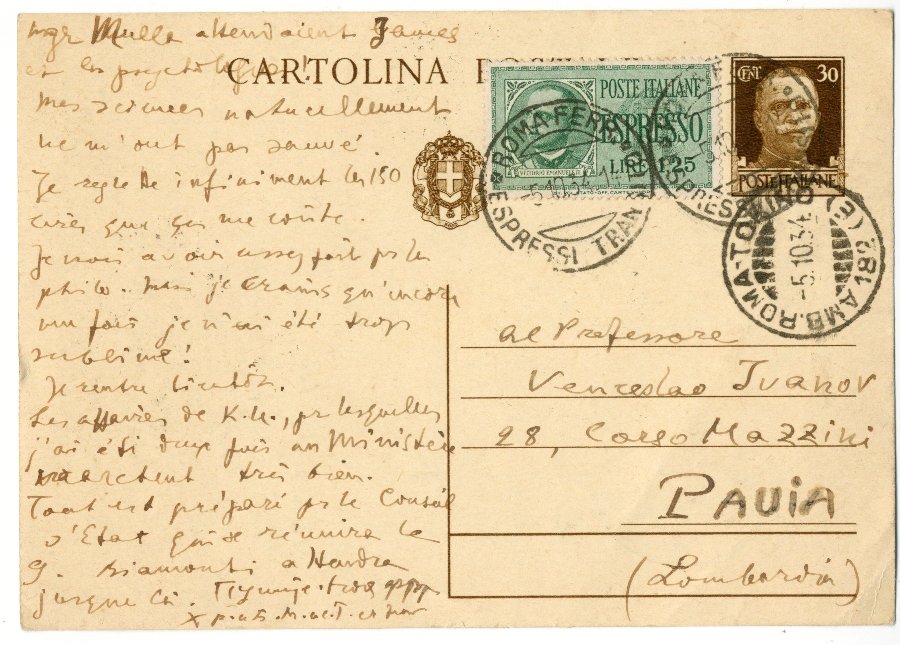 Mlle attendaient James
et les psychologues!
CARTOLINA PO
Mes sciences naturellement
ne m'ont pas sauvé.
Je regrette infiniment les 150
lires que ça me coûte.
Je crois avoir assez fait pr la
philo. Mais je crains qu'encore
une fois je n'ai été trop
sublime!
Je rentre bientôt.
Les affaires de K.U., pr lesquelles
j'ai été deux fois au Ministère
marchent très bien.
Tout est préparé pr le Conseil
d'Etat qui se réunira le
9. Biamonti
jusque là.
POSTE ITALIANE
ESPRESSO
LIRE 1,25
VITTORIO EMANUELE III
CENT 30
POSTE ITALIANE
ROMA FERR
-5.10.34
ESPRESSI
182 AMB. ROMA-TORINO (E)
-5.10.34
Al Professore
Venceslao Ivanov
28, Corso Mazzini
PAVIA
(Lombardia)